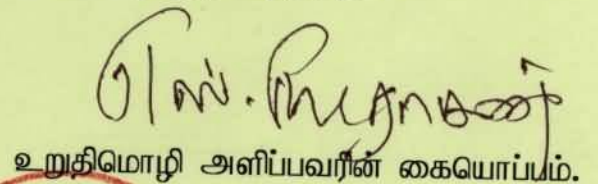 எஸ்.
உறுதிமொழி அளிப்பவரின் கையொப்பம்.